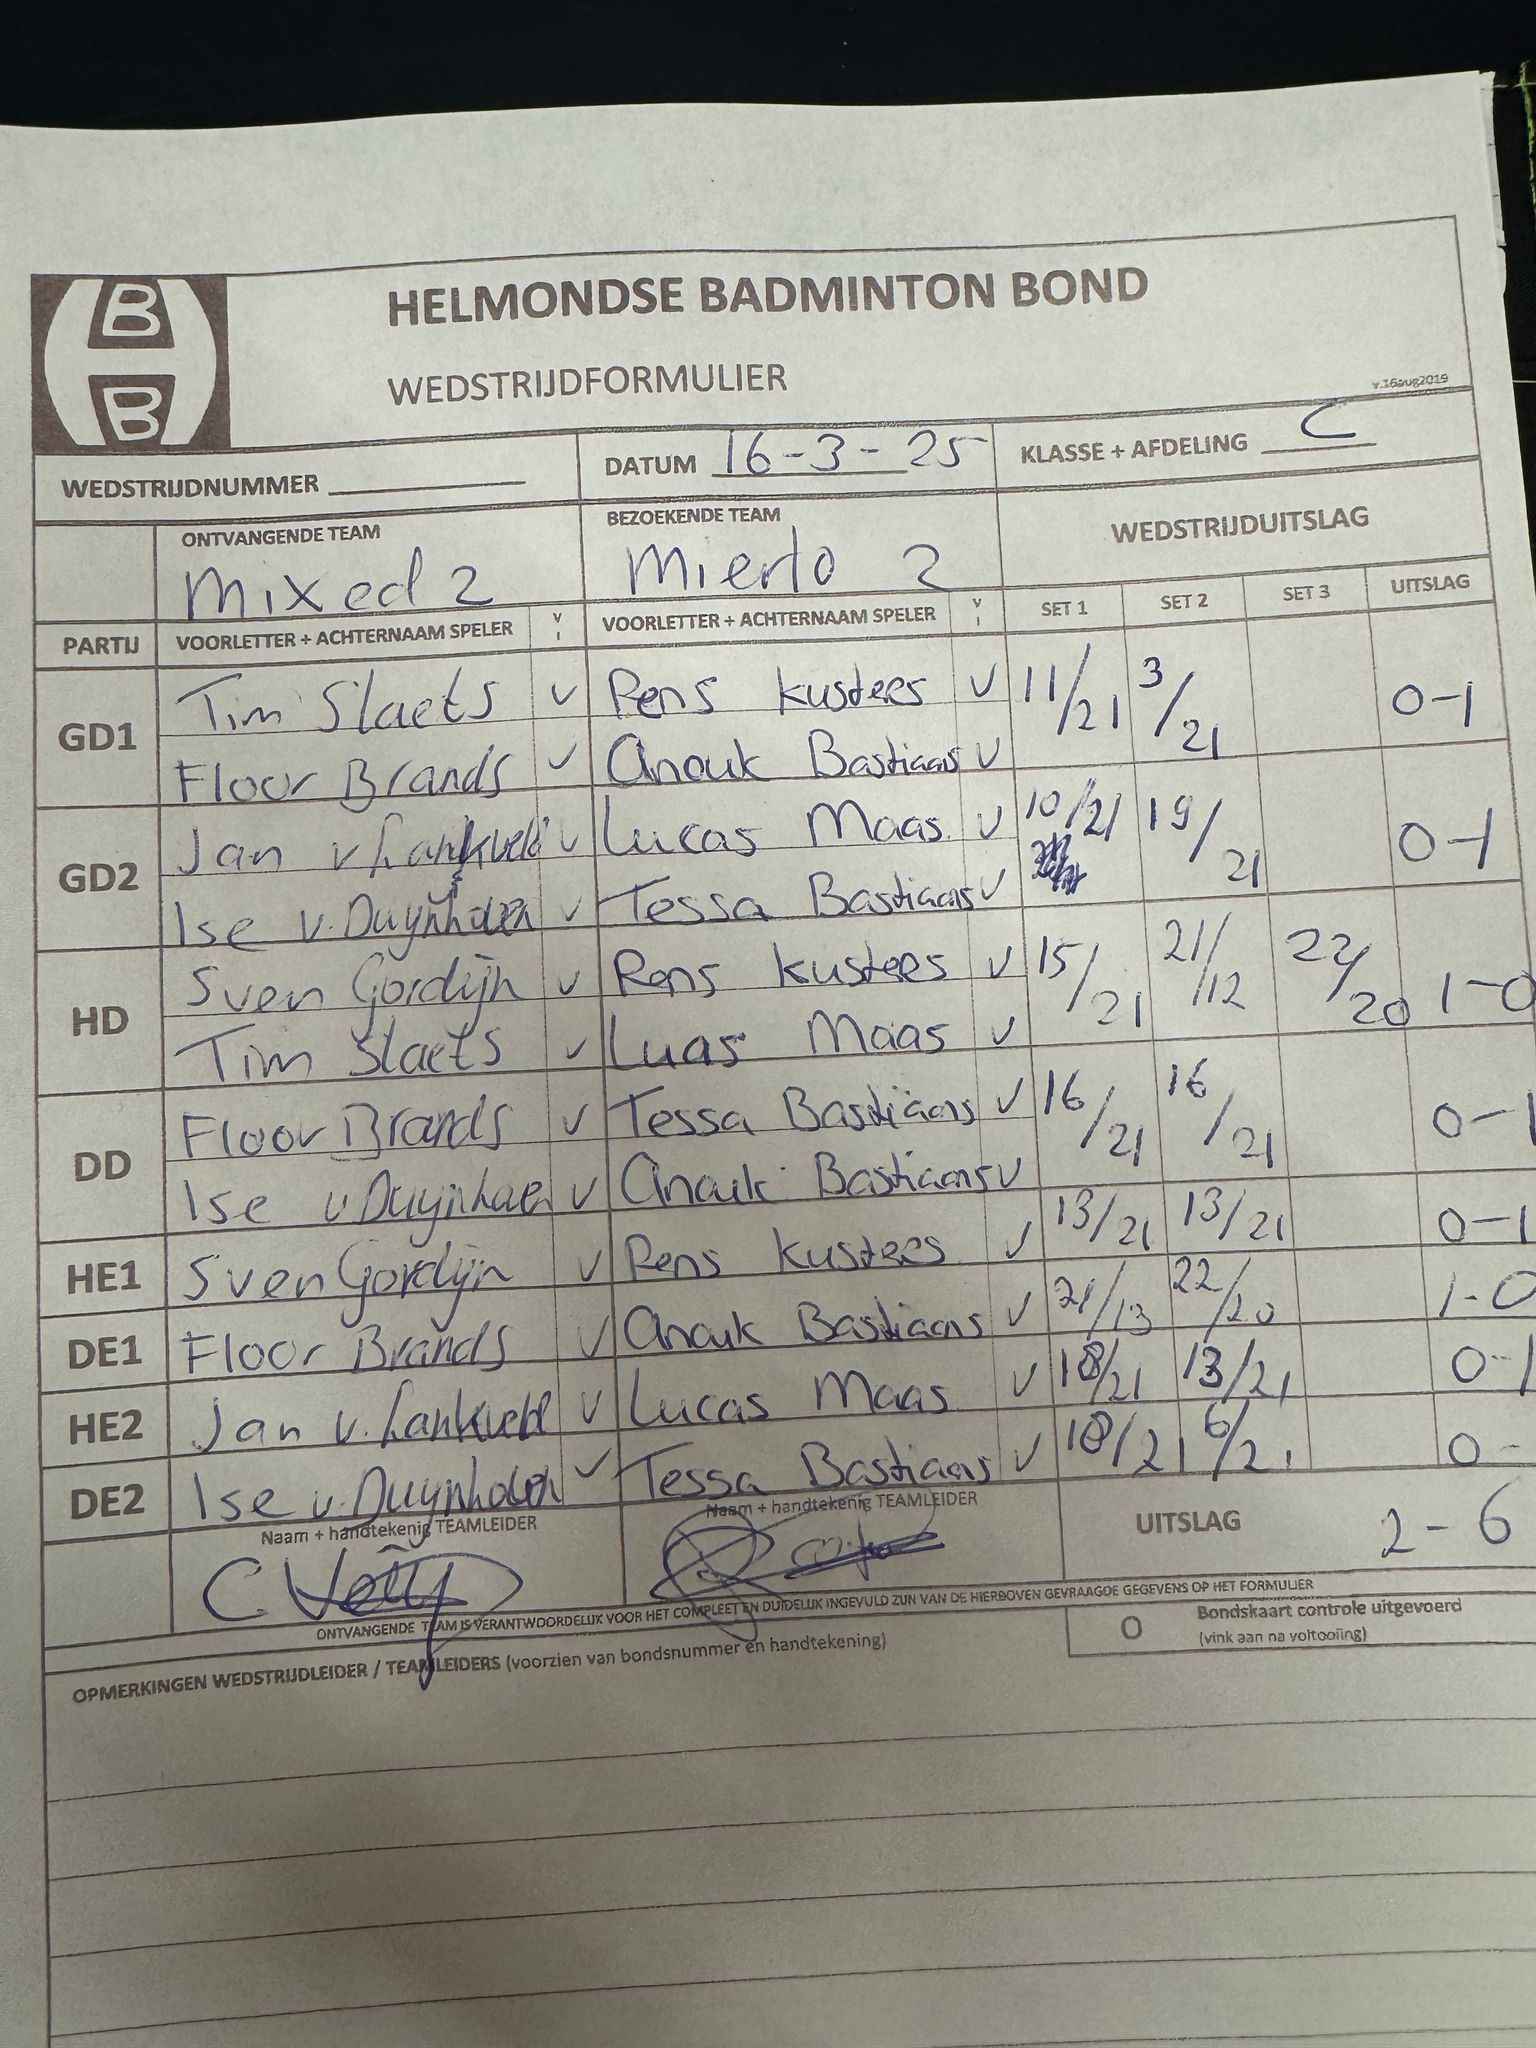 B
B
HELMONDSE BADMINTON BOND
WEDSTRIJDFORMULIER
v.16aug2019
WEDSTRIJDNUMMER DATUM 16-3-25 KLASSE + AFDELING C
ONTVANGENDE TEAM BEZOEKENDE TEAM WEDSTRIJDUITSLAG
Mixed 2 Mierlo 2
PARTIJ VOORLETTER + ACHTERNAAM SPELER V VOORLETTER + ACHTERNAAM SPELER V SET 1 SET 2 SET 3 UITSLAG
GD1 Tim Slaets v Rens Kusters v 11/21 3/21 0-1
Floor Brands v Anouk Bastiaans v
GD2 Jan v Lankveld v Lucas Maas v 10/21 19/21 0-1
Ise v. Duynhoven v Tessa Bastiaans v
HD Sven Gordijn v Rens Kusters v 15/21 21/12 22/20 1-0
Tim Slaets v Lucas Maas v
DD Floor Brands v Tessa Bastiaans v 16/21 16/21 0-1
Ise v Duynhoven v Anouk Bastiaans v
HE1 Sven Gordijn v Rens Kusters v 13/21 13/21 0-1
DE1 Floor Brands v Anouk Bastiaans v 21/13 22/20 1-0
HE2 Jan v. Lankveld v Lucas Maas v 18/21 13/21 0-1
DE2 Ise v. Duynhoven v Tessa Bastiaans v 18/21 6/21 0-
Naam + handtekenig TEAMLEIDER Naam + handtekenig TEAMLEIDER UITSLAG 2-6
ONTVANGENDE TEAM IS VERANTWOORDELIJK VOOR HET COMPLEET EN DUIDELIJK INGEVULD ZIJN VAN DE HIERBOVEN GEVRAAGDE GEGEVENS OP HET FORMULIER
O Bondskaart controle uitgevoerd
(vink aan na voltooiing)
OPMERKINGEN WEDSTRIJDLEIDER / TEAMLEIDERS (voorzien van bondsnummer en handtekening)